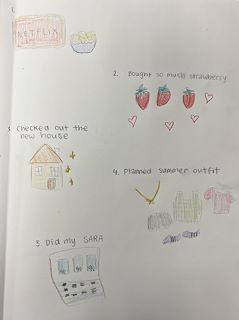 1.
NETFLIX
2. Bought so much strawberry
3. Checked out the
new house
4. Planned summer outfit
5. Did my SARA